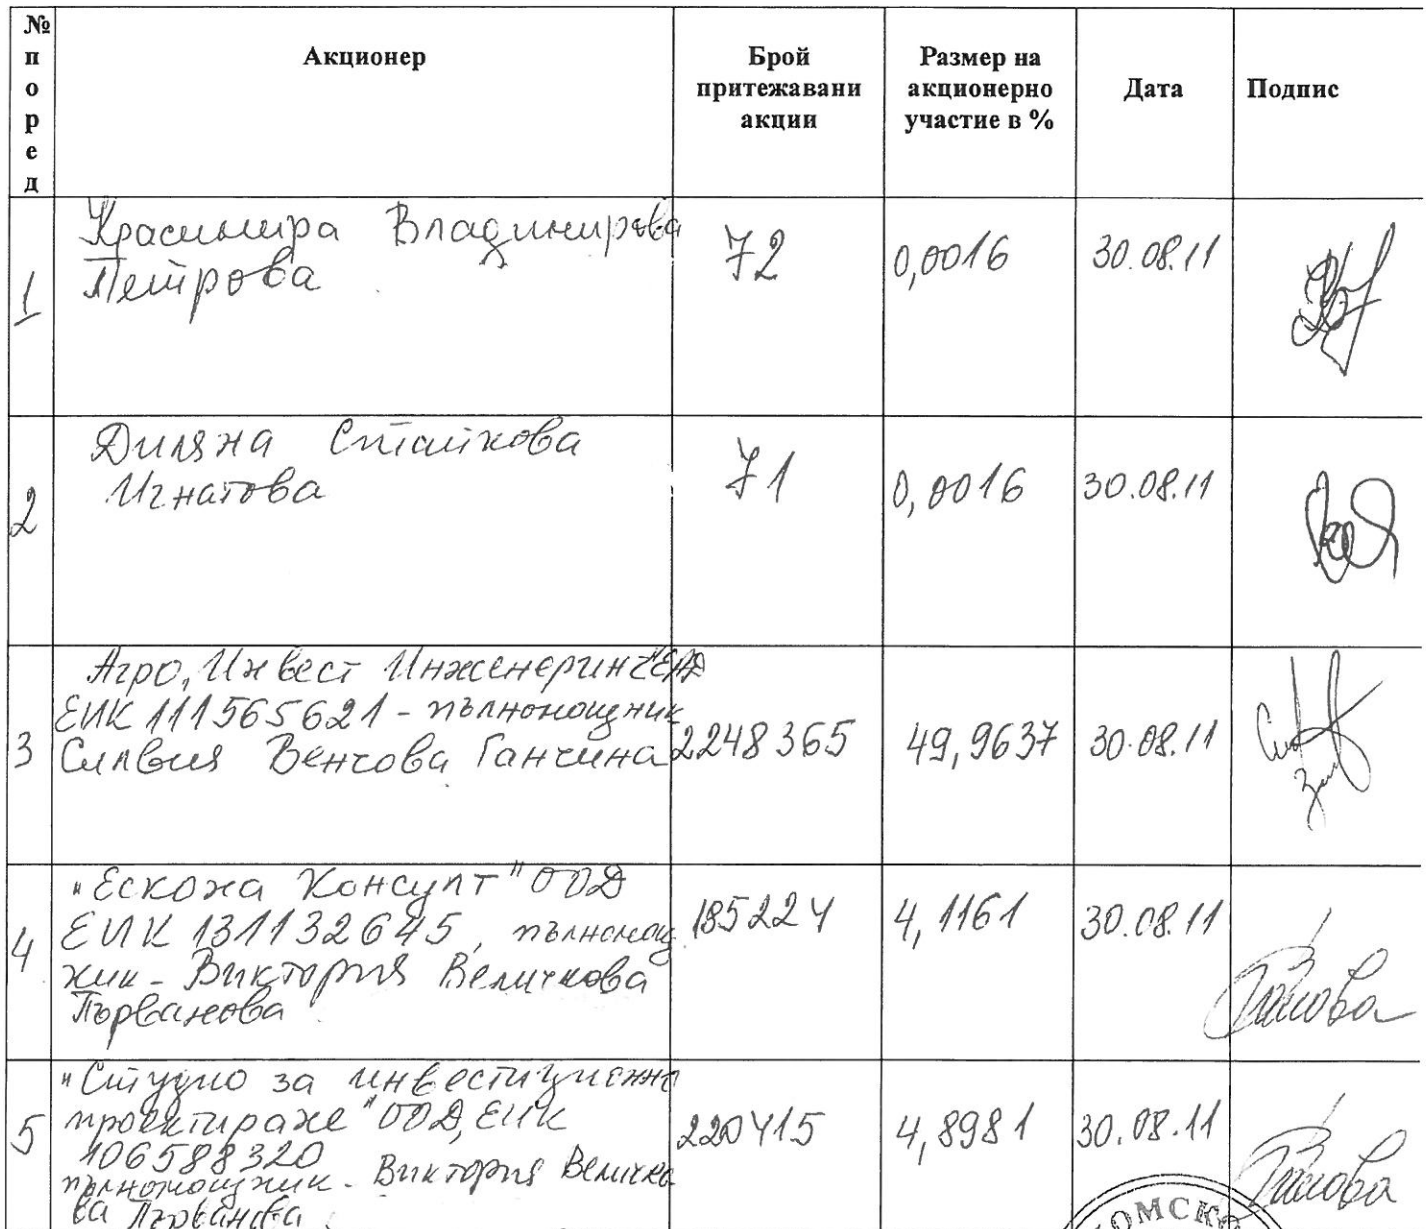 № по ред
Акционер
Брой притежавани акции
Размер на акционерно участие в %
Дата
Подпис
1
Красимира Владимирова
Петрова
72
0,0016
30.08.11
2
Диляна Стайкова
Игнатова
71
0,0016
30.08.11
3
Агро Инвест Инженеринг" ЕАД
ЕИК 111565621 - пълномощник
Силвия Венчова Ганчина
2248365
49,9637
30.08.11
4
"Ескона Консулт" ООД
ЕИК 131132645, пълномощ
ник - Виктория Величкова
Първанова
185224
4,1161
30.08.11
5
"Студио за инвестиционно
проектиране" ООД, ЕИК
106588320
пълномощник - Виктория Величко
ва Първанова
220415
4,8981
30.08.11